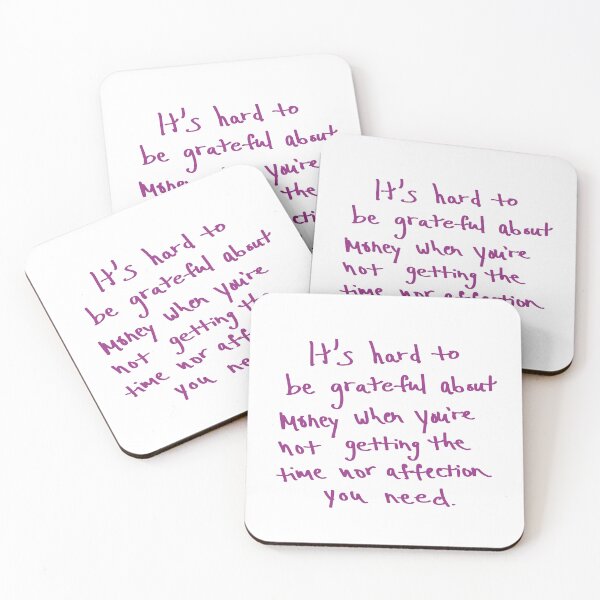 It's hard to
be grateful about
Money You're
the
It's hard to
be grateful about
Money when You're
not getting the
time nor affection
It's hard to
be grateful about
Money when You're
not getting the
time nor affec
you nee
It's hard to
be grateful about
Money when You're
not getting the
time nor affection
you need.